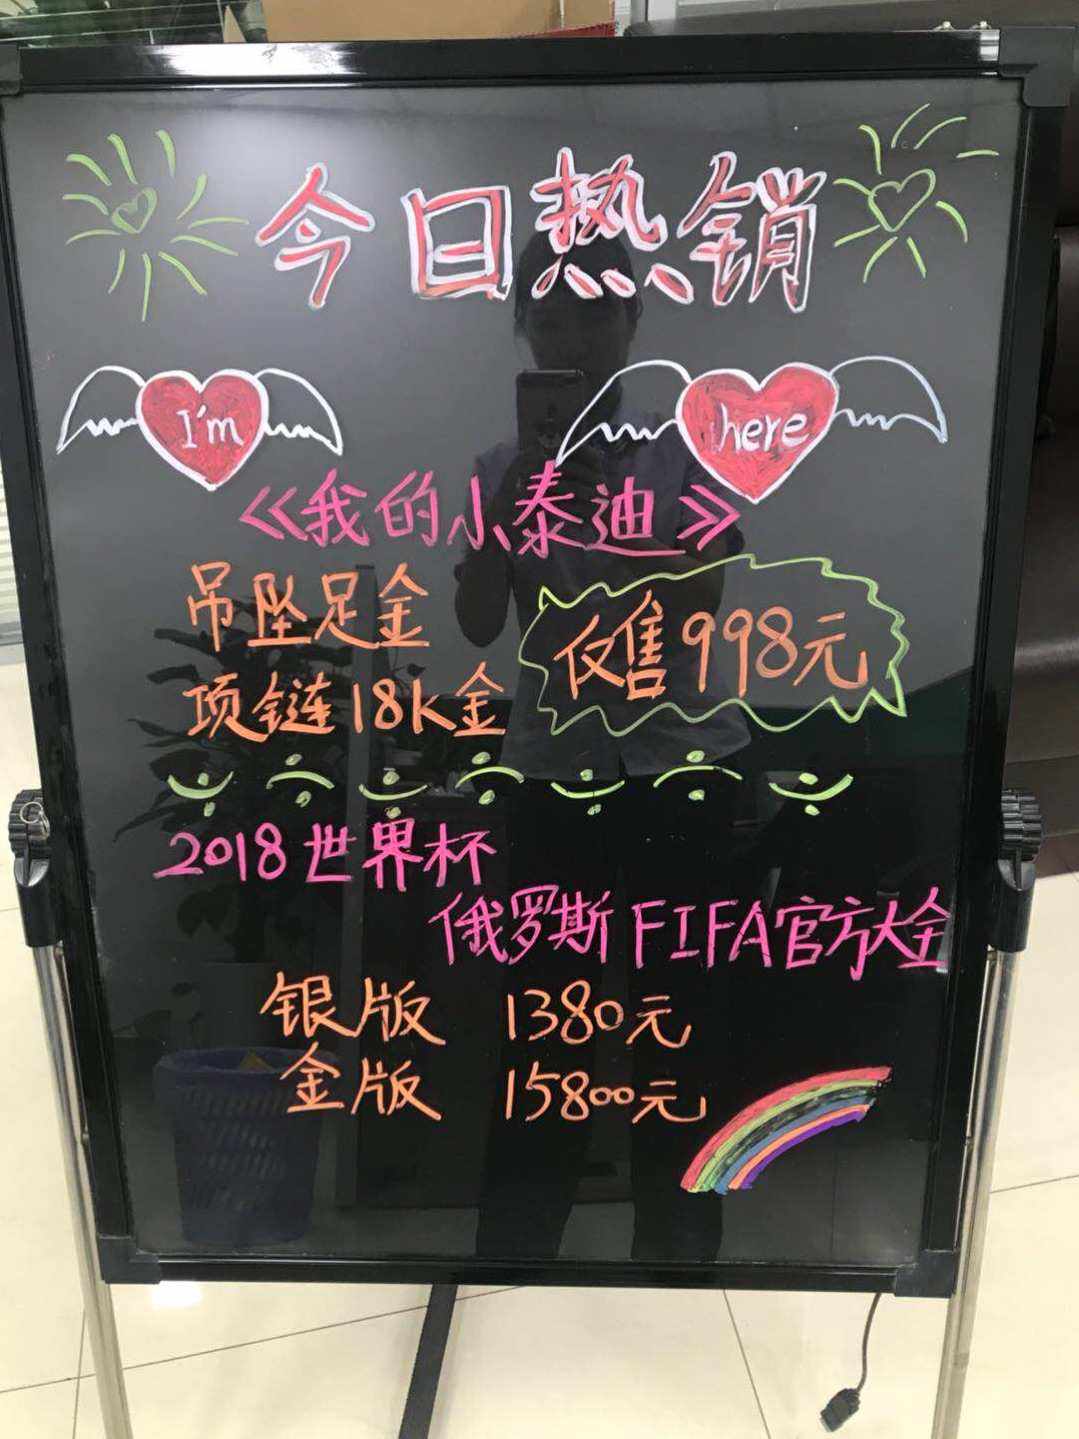 今日热销
I'm here
《我的小泰迪》
吊坠足金
项链18K金
仅售998元
2018世界杯
俄罗斯FIFA官方大全
银版 1380元
金版 15800元